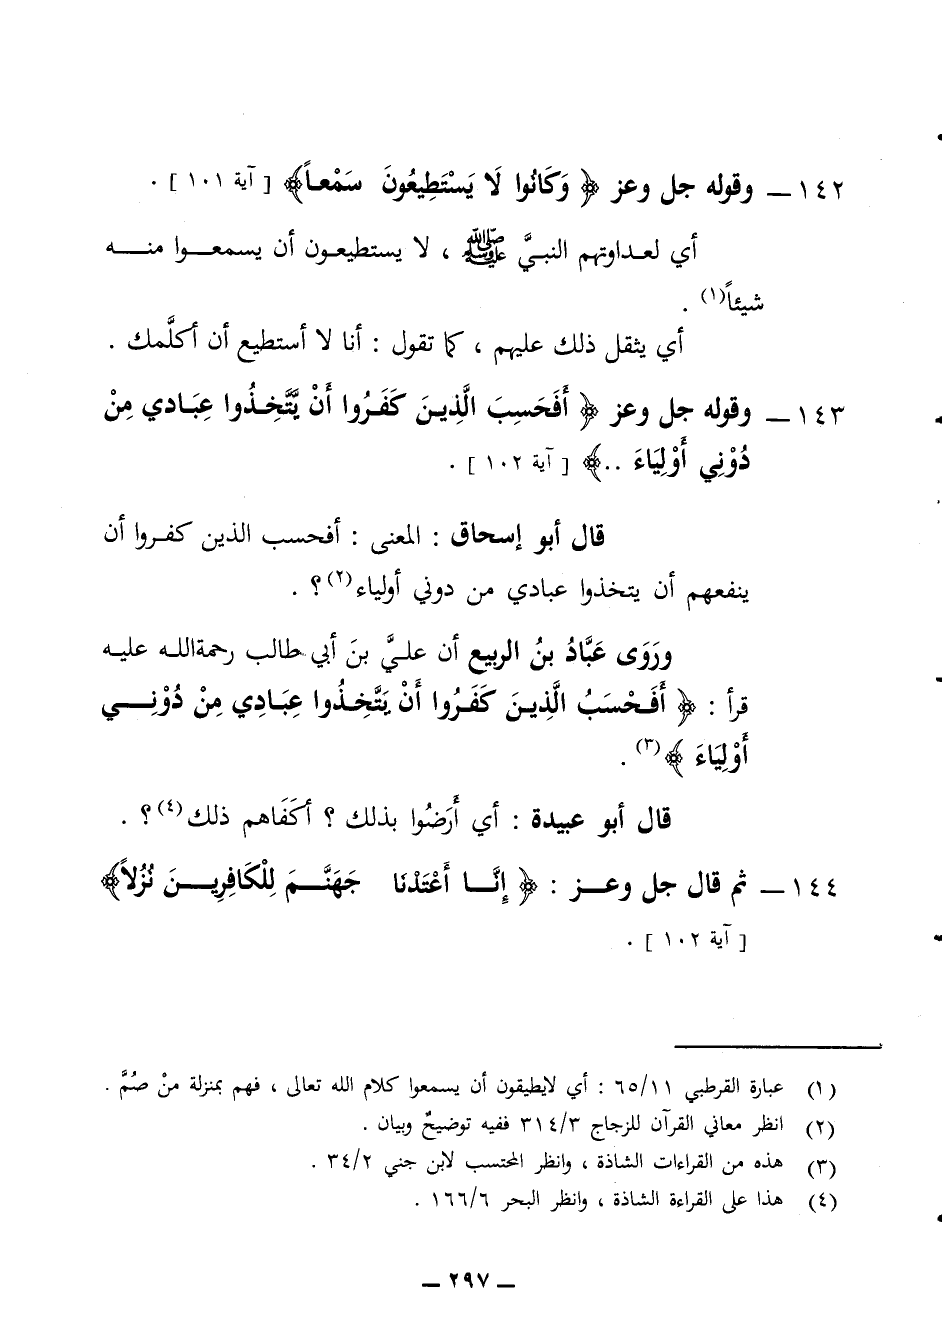 ١٤٢ ــ وقوله جل وعز ﴿ وَكَانُوا لَا يَسْتَطِيعُونَ سَمْعاً﴾ [ آية ١٠١ ] .
أي لعداوتهم النبيَّ ﷺ ، لا يستطيعون أن يسمعوا منه
شيئاً(١) .
أي يثقل ذلك عليهم ، كما تقول : أنا لا أستطيع أن أكلَّمك .
١٤٣ ــ وقوله جل وعز ﴿ أَفَحَسِبَ الَّذِينَ كَفَرُوا أَنْ يَّتَّخِذُوا عِبَادي مِنْ
دُوْنِي أَوْلِيَاءَ ..﴾ [ آية ١٠٢ ] .
قال أبو إسحاق : المعنى : أفحسب الذين كفروا أن
ينفعهم أن يتخذوا عبادي من دوني أولياء(٢)؟ .
ورَوَى عَبَّادُ بنُ الربيع أن عليَّ بنَ أبي طالب رحمةالله عليه
قرأ : ﴿ أَفَحْسَبُ الَّذِينَ كَفَرُوا أَنْ يَتَّخِذُوا عِبَادِي مِنْ دُوْنِي
أَوْلِيَاءَ ﴾(٣) .
قال أبو عبيدة : أي أَرَضُوا بذلك ؟ أكَفَاهم ذلك(٤)؟ .
١٤٤ ــ ثم قال جل وعز : ﴿ إِنَّا أَعْتَدْنَا جَهَنَّمَ لِلْكَافِرِينَ نُزُلاً﴾
[ آية ١٠٢ ] .
(١) عبارة القرطبي ٦٥/١١ : أي لايطيقون أن يسمعوا كلام الله تعالى ، فهم بمنزلة منْ صُمَّ .
(٢) انظر معاني القرآن للزجاج ٣١٤/٣ ففيه توضيحٌ وبيان .
(٣) هذه من القراءات الشاذة ، وانظر المحتسب لابن جني ٣٤/٢ .
(٤) هذا على القراءة الشاذة ، وانظر البحر ١٦٦/٦ .
ــ ٢٩٧ ــ